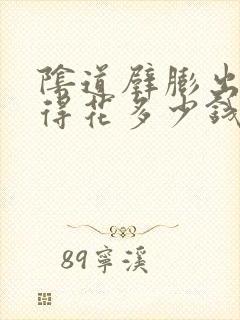 陰道壁膨出
得花多少錢
89寧溪